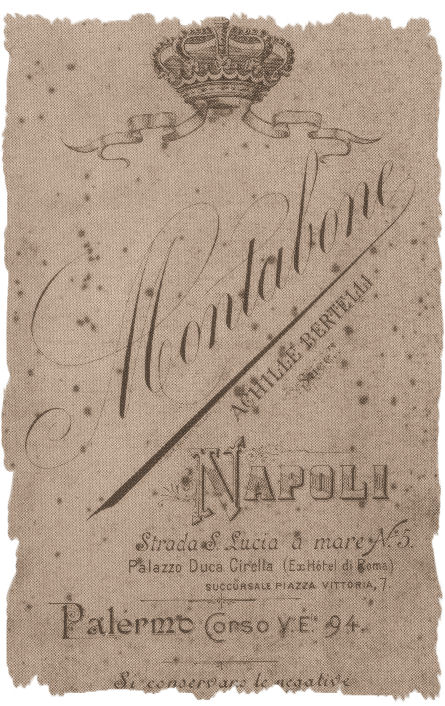 Montabone
ACHILLE BERTELLI
Succ.r
NAPOLI
Strada S. Lucia a mare N.º 5.
Palazzo Duca Cirella (Ex Hôtel di Roma)
SUCCURSALE PIAZZA VITTORIA, 7.
Palermo Corso V.E. 94.
Si conservano le negative